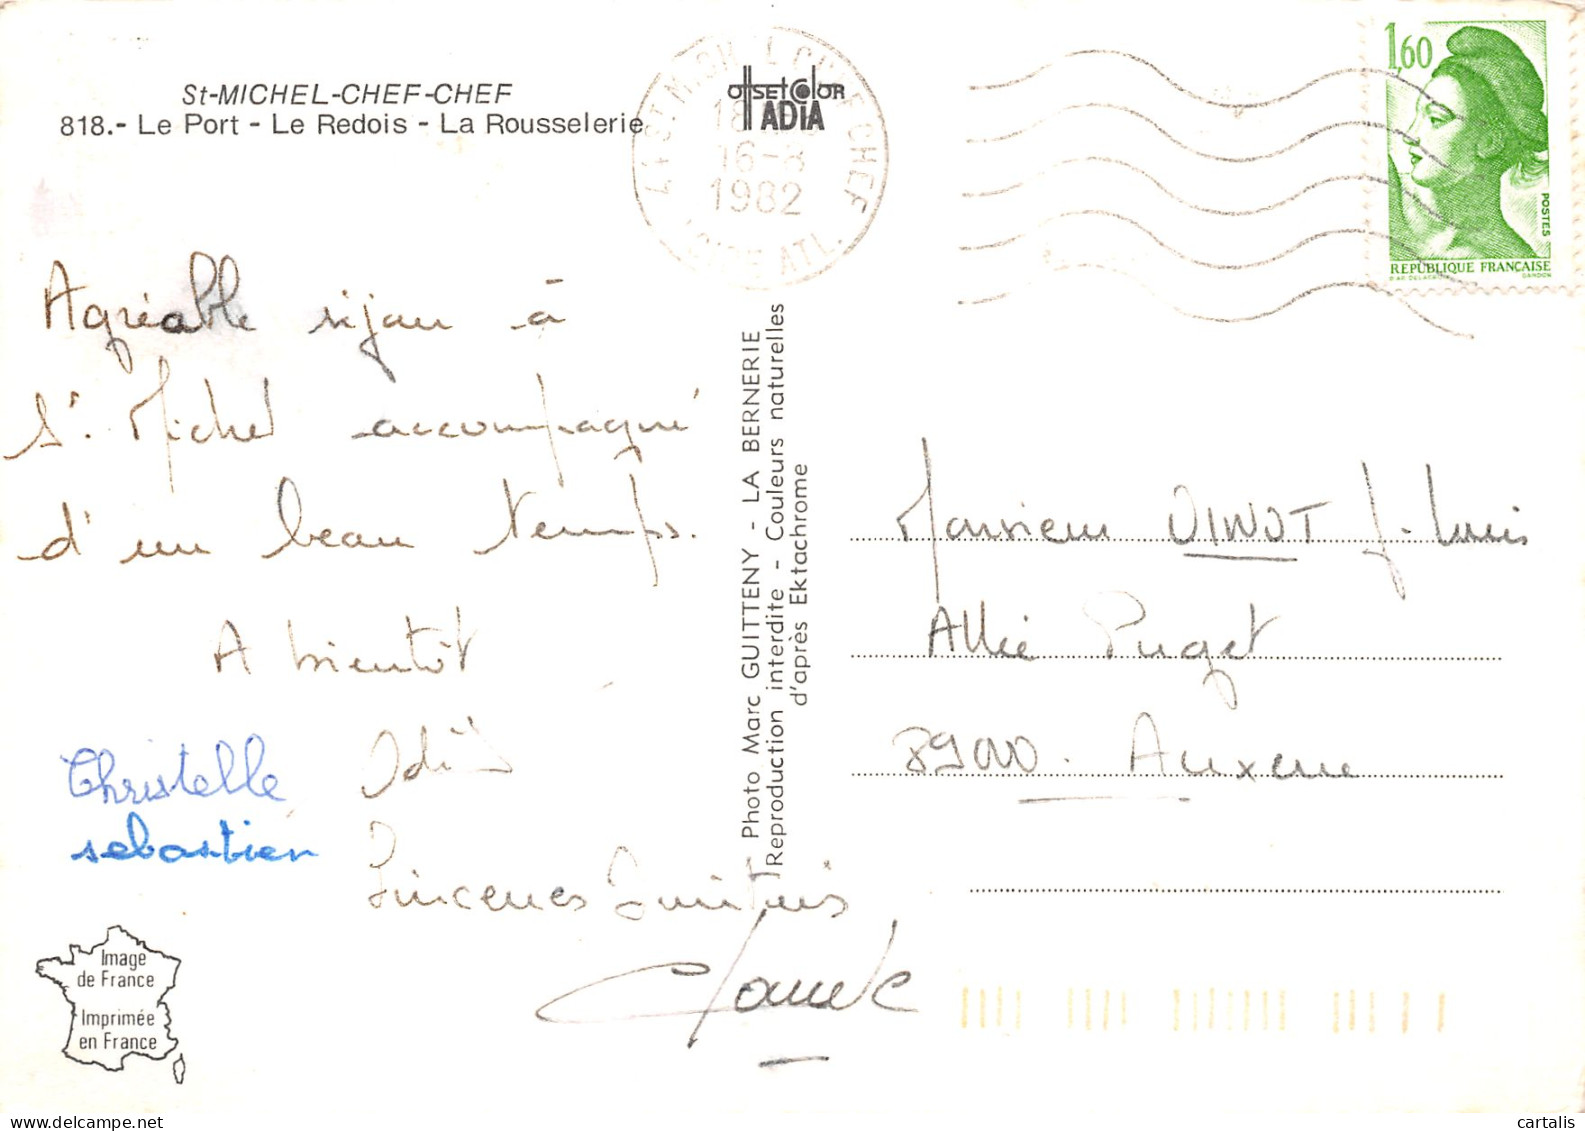 St-MICHEL-CHEF-CHEF
818.- Le Port - Le Redois - La Rousselerie
Agréable séjour à
St. Michel accompagné
d'un beau temps.
A bientôt
Christelle
sebastien
Odile
Sincères
Image
de France
Imprimée
en France
offset color
ADIA
44 ST MICHEL CHEF CHEF
18
16-8
1982
LOIRE ATL.
Photo Marc GUITTENY - LA BERNERIE
Reproduction interdite - Couleurs naturelles
d'après Ektachrome
1,60
POSTES
REPUBLIQUE FRANÇAISE
GANDON
Monsieur VINOT J-Louis
Allée Puget
89000 . Auxerre
cartalis
delcampe.net